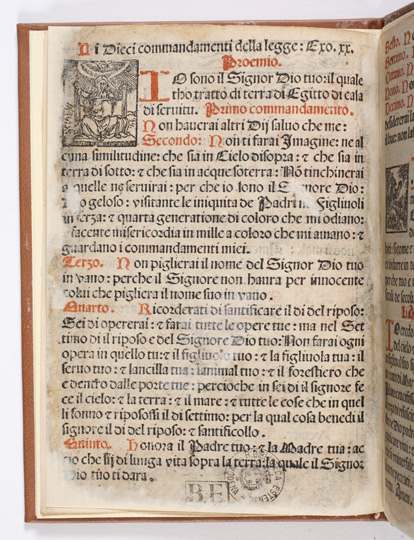 Li Dieci commandamenti della legge: Exo. xx.
Proemio.
IO sono il Signor Dio tuo: il quale
tho tratto di terra di Egitto di casa
di seruitu. Primo commandamento.
Non hauerai altri Dij saluo che me:
Secondo: Non ti farai Imagine: ne al
cuna similitudine: che sia in Cielo disopra: & che sia in
terra di sotto: & che sia in acque soterra: Nō tinchinerai
a quelle ne seruirai: per che io sono il Signore Dio:
tuo geloso: visitante le iniquita de Padri ne Figliuoli
in terza: & quarta generatione di coloro che mi odiano:
& faccente misericordia in mille a coloro che mi amano: &
guardano i commandamenti miei.
Terzo. Non piglierai il nome del Signor Dio tuo
in vano: perche il Signore non haura per innocente
colui che pigliera il nome suo in vano.
Quarto. Ricorderati di santificare il di del riposo:
Sei di opererai: & farai tutte le opere tue: ma nel Set
timo di il riposo e del Signore Dio tuo: Non farai ogni
opera in quello tu: & il figliuolo tuo: & la figliuola tua: il
seruo tuo: & lancilla tua: lanimal tuo: & il forestiero che
e dentro dalle porte tue: percioche in sei di il signore fe
ce il cielo: & la terra: & il mare: & tutte le cose che in quel
li sono & riposossi il di settimo: per la qual cosa benedi il
signore il di del riposo: & santificollo.
Quinto. Honora il Padre tuo: & la Madre tua: ac
cio che sij di lunga vita sopra la terra: la quale il Signor
Dio tuo ti dara.
B.E.
ESTENSE